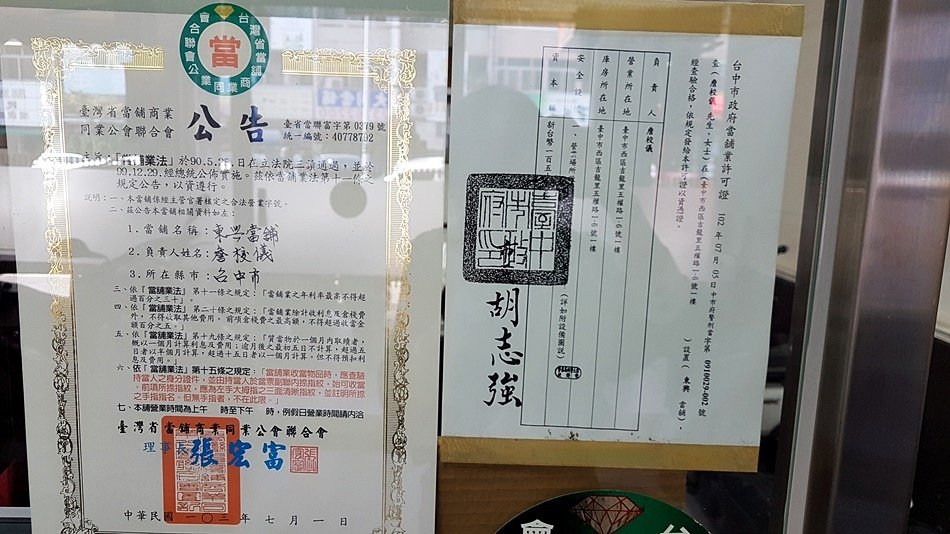 台灣省當舖商業同業公會聯合會
當
臺灣省當舖商業
同業公會聯合會
公告
臺省當聯富字第0379號
統一編號：40778792
「當舖業法」於90.5.25.日在立法院三讀通過，並於
99.12.29.經總統公佈實施。茲依當舖業法第十一條之
規定公告，以資遵行。
說明：一、本當舖係經主管官署核定之合法營業字號。
二、茲公告本當舖相關資料如左：
1.當舖名稱：東興當舖
2.負責人姓名：詹校儀
3.所在縣市：台中市
三、依「當舖業法」第十一條之規定：「當舖業之年利率最高不得超
過百分之三十」。
四、依「當舖業法」第二十條之規定：「當舖業除計收利息及倉棧費
外，不得收取其他費用。前項倉棧費之最高額，不得超過收當金
額百分之五。」
五、依「當舖業法」第十九條之規定：「質當物於一個月內取贖者，
概以一個月計算利息及費用；逾月後之最初五日不計算，超過五
日者以半個月計算，超過十五日者以一個月計算。但不得預扣利
息及費用。」
六、依「當舖業法」第十五條之規定：「當舖業收當物品時，應查驗
持當人之身分證件，並由持當人於當票副聯內捺指紋，始可收當
，前項所捺指紋，應為左手大拇指之三面清晰指紋，並註明所捺
之手指指名。但無手指者，不在此限。」
七、本舖營業時間為上午　時至下午　時，例假日營業時間請內洽
臺灣省當舖商業同業公會聯合會
理事長 張宏富
中華民國一〇三年七月一日
台中市政府當舖業許可證
102年07月05日中市府警刑當字第0910029-002號
查（詹校儀 先生、女士）在（臺中市西區吉龍里五權路1-6號一樓）設置（東興 當舖），
經查驗合格，依規定發給本許可證以資憑證。
負責人 詹校儀
營業所在地 臺中市西區吉龍里五權路1-6號一樓
庫房所在地 臺中市西區吉龍里五權路1-6號一樓
安全設備 一、營業場所
（詳如附設備圖說）
資本額 新台幣一百五
胡志強
會
台